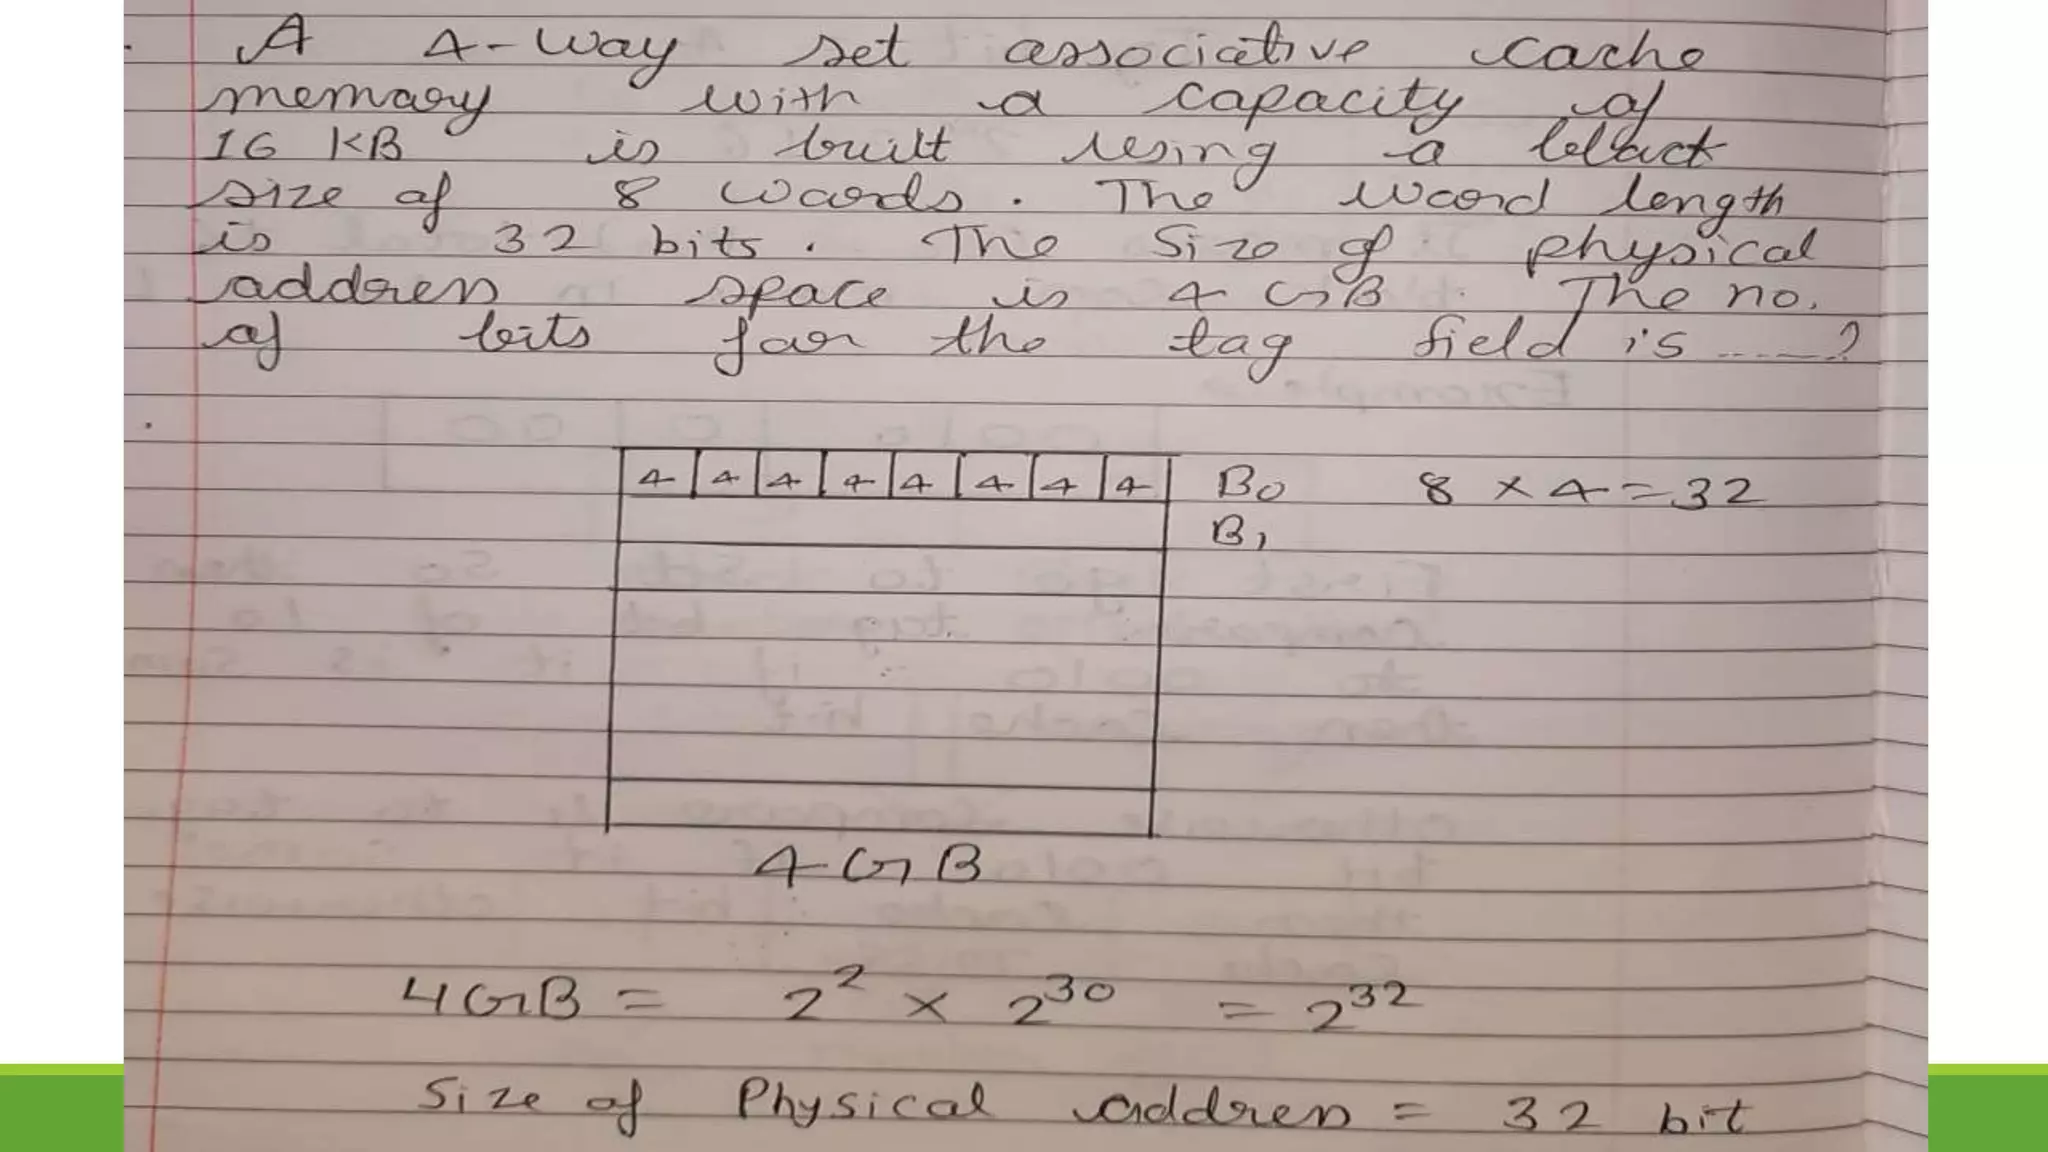 A 4-Way set associative cache
memory with a capacity of
16 KB is built using a block
size of 8 words. The word length
is 32 bits. The Size of physical
address space is 4 GB. The no.
of bits for the tag field is .....?
4 4 4 4 4 4 4 4 B0 8 × 4 = 32
B1
4 GB
4GB = 2² × 2³⁰ = 2³²
Size of Physical address = 32 bit